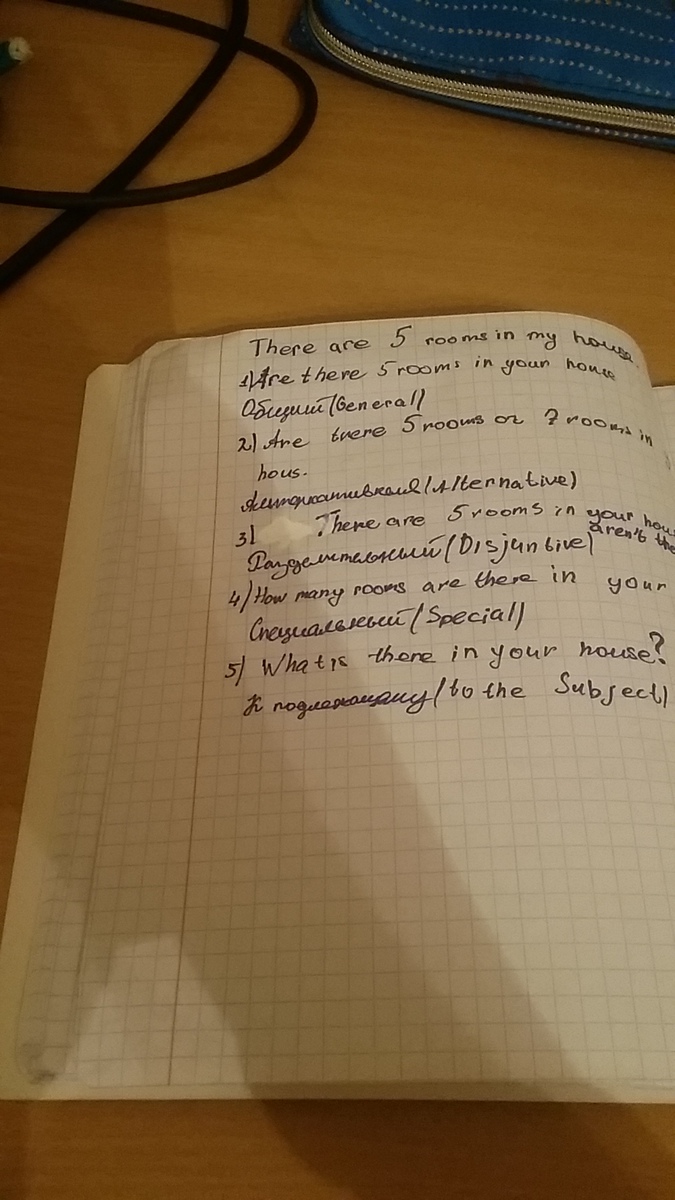 There are 5 rooms in my house
1) Are there 5 rooms in your house
Общий (General)
2) Are there 5 rooms or 7 rooms in
hous.
Альтернативный (Alternative)
3) There are 5 rooms in your hou
aren't the
Разделительный (Disjuntive)
4) How many rooms are there in your
Специальный (Special)
5) What is there in your house?
К подлежащему (to the Subject)